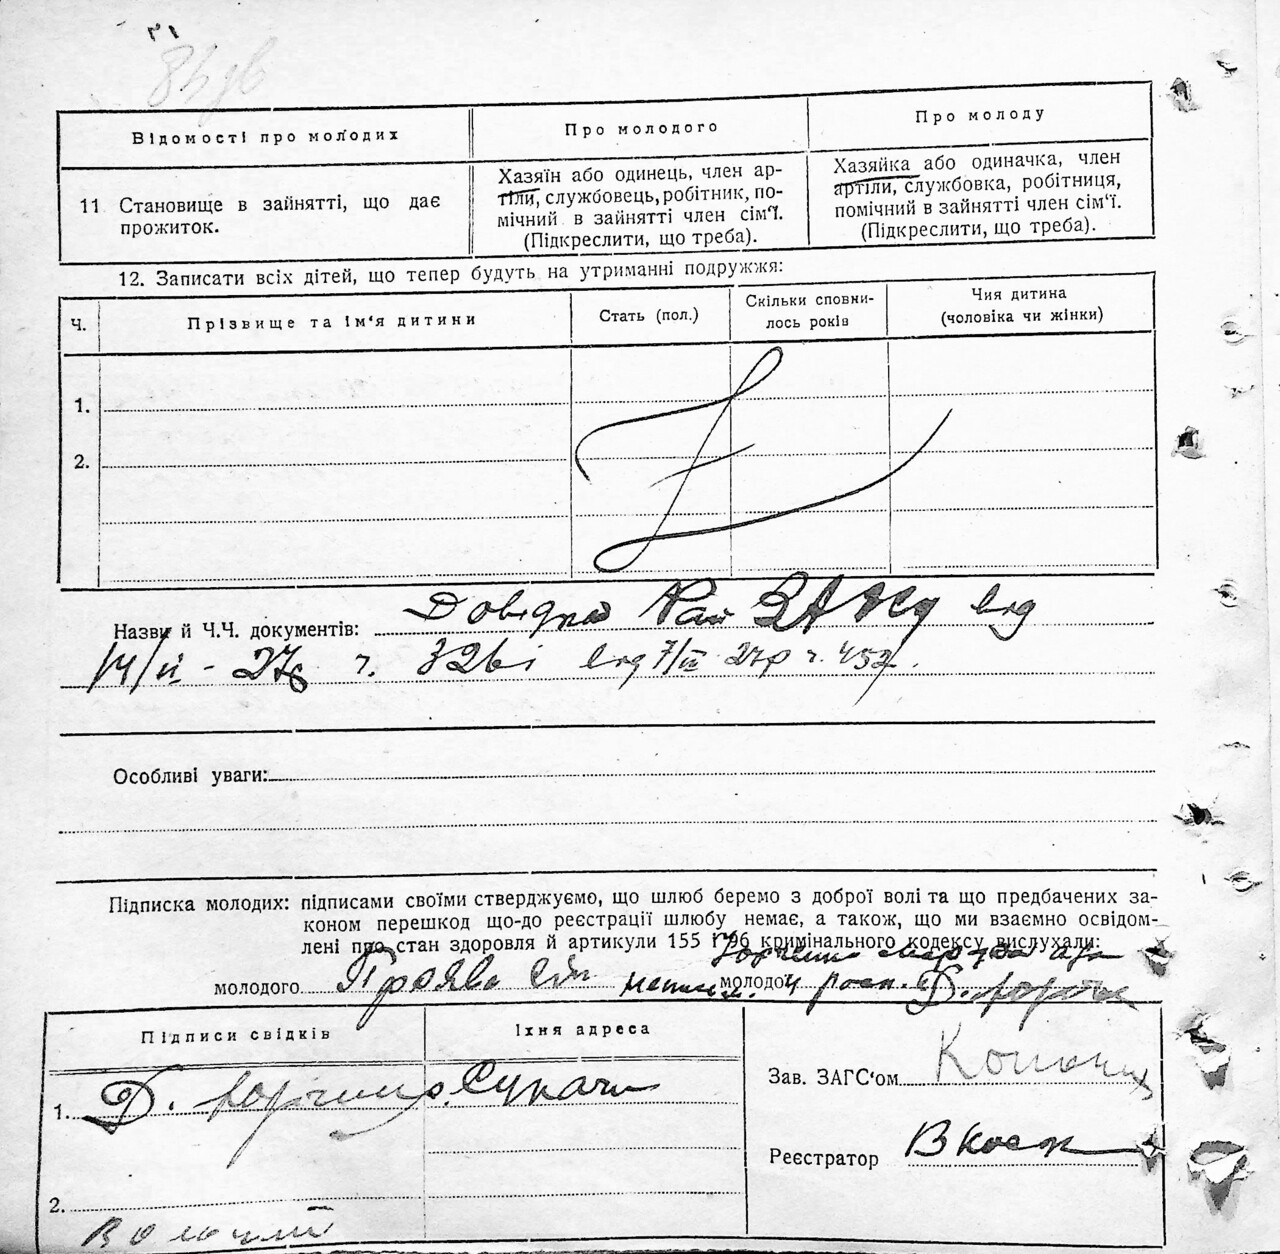 Відомості про молодих
Про молодого
Про молоду
11 Становище в зайнятті, що дає
прожиток.
Хазяїн або одинець, член ар-
тіли, службовець, робітник, по-
мічний в зайнятті член сім'ї.
(Підкреслити, що треба).
Хазяйка або одиначка, член
артіли, службовка, робітниця,
помічний в зайнятті член сім'ї.
(Підкреслити, що треба).
12. Записати всіх дітей, що тепер будуть на утриманні подружжя:
Ч.
Прізвище та ім'я дитини
Стать (пол.)
Скільки сповни-
лось років
Чия дитина
(чоловіка чи жінки)
1.
2.
Назви й Ч.Ч. документів: Довідка Рай ЗАГСу від
14/II - 27р ч. від 7/II 27р ч. 452.
Особливі уваги:
Підписка молодих: підписами своїми стверджуємо, що шлюб беремо з доброї волі та що предбачених за-
коном перешкод що-до реєстрації шлюбу немає, а також, що ми взаємно освідом-
лені про стан здоровля й артикули 155 і 196 кримінального кодексу вислухали:
молодого
молодої
Підписи свідків
Їхня адреса
1. Д.
2.
Зав. ЗАГС'ом
Реєстратор